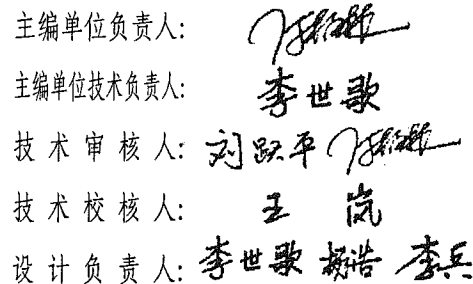 主编单位负责人:
主编单位技术负责人: 李世歌
技术审核人: 刘跃平
技术校核人: 王岚
设计负责人: 李世歌 杨浩 李兵